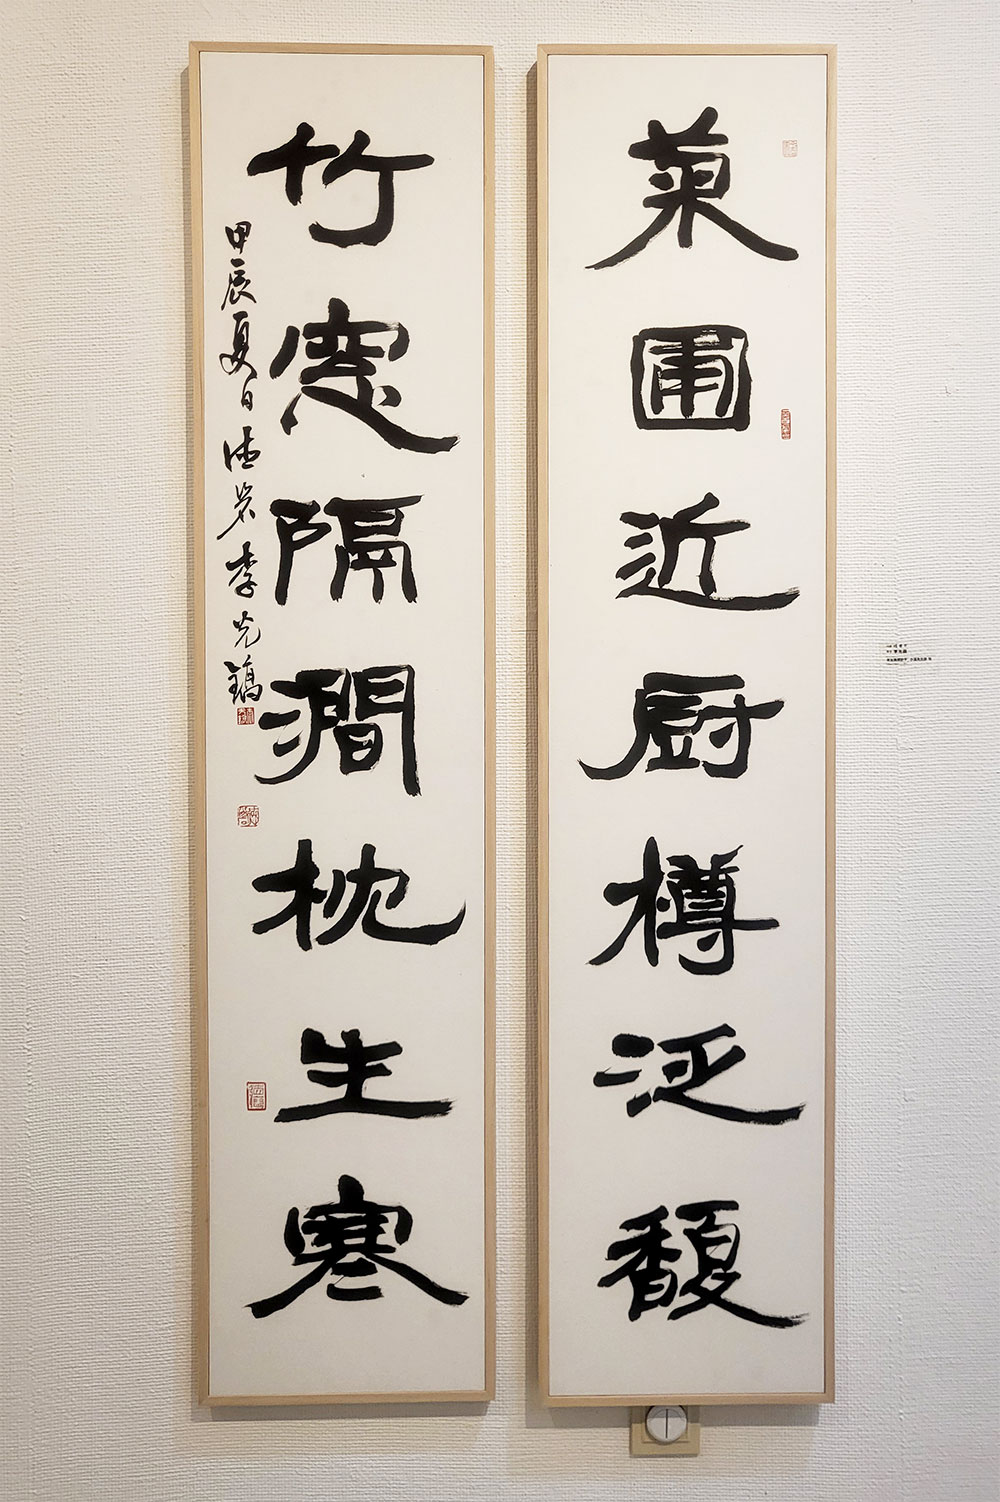 菊圃近厨樽泛馥
竹窓隔澗枕生寒
甲辰夏日 李光鎬